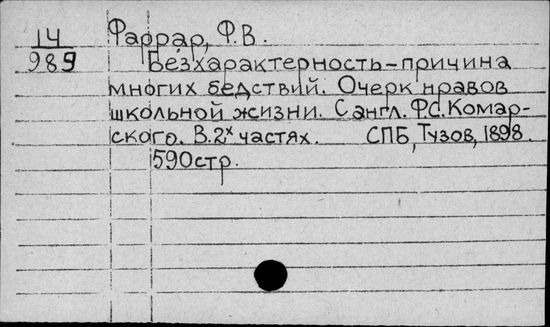 14
989
Фаррар, Ф.В.
Безхарактерность-причина
многих бедствий. Очерк нравов
школьной жизни. С англ. Ф.С.Комар-
ского. В.2х частях. СПБ, Тузов, 1898.
590стр.